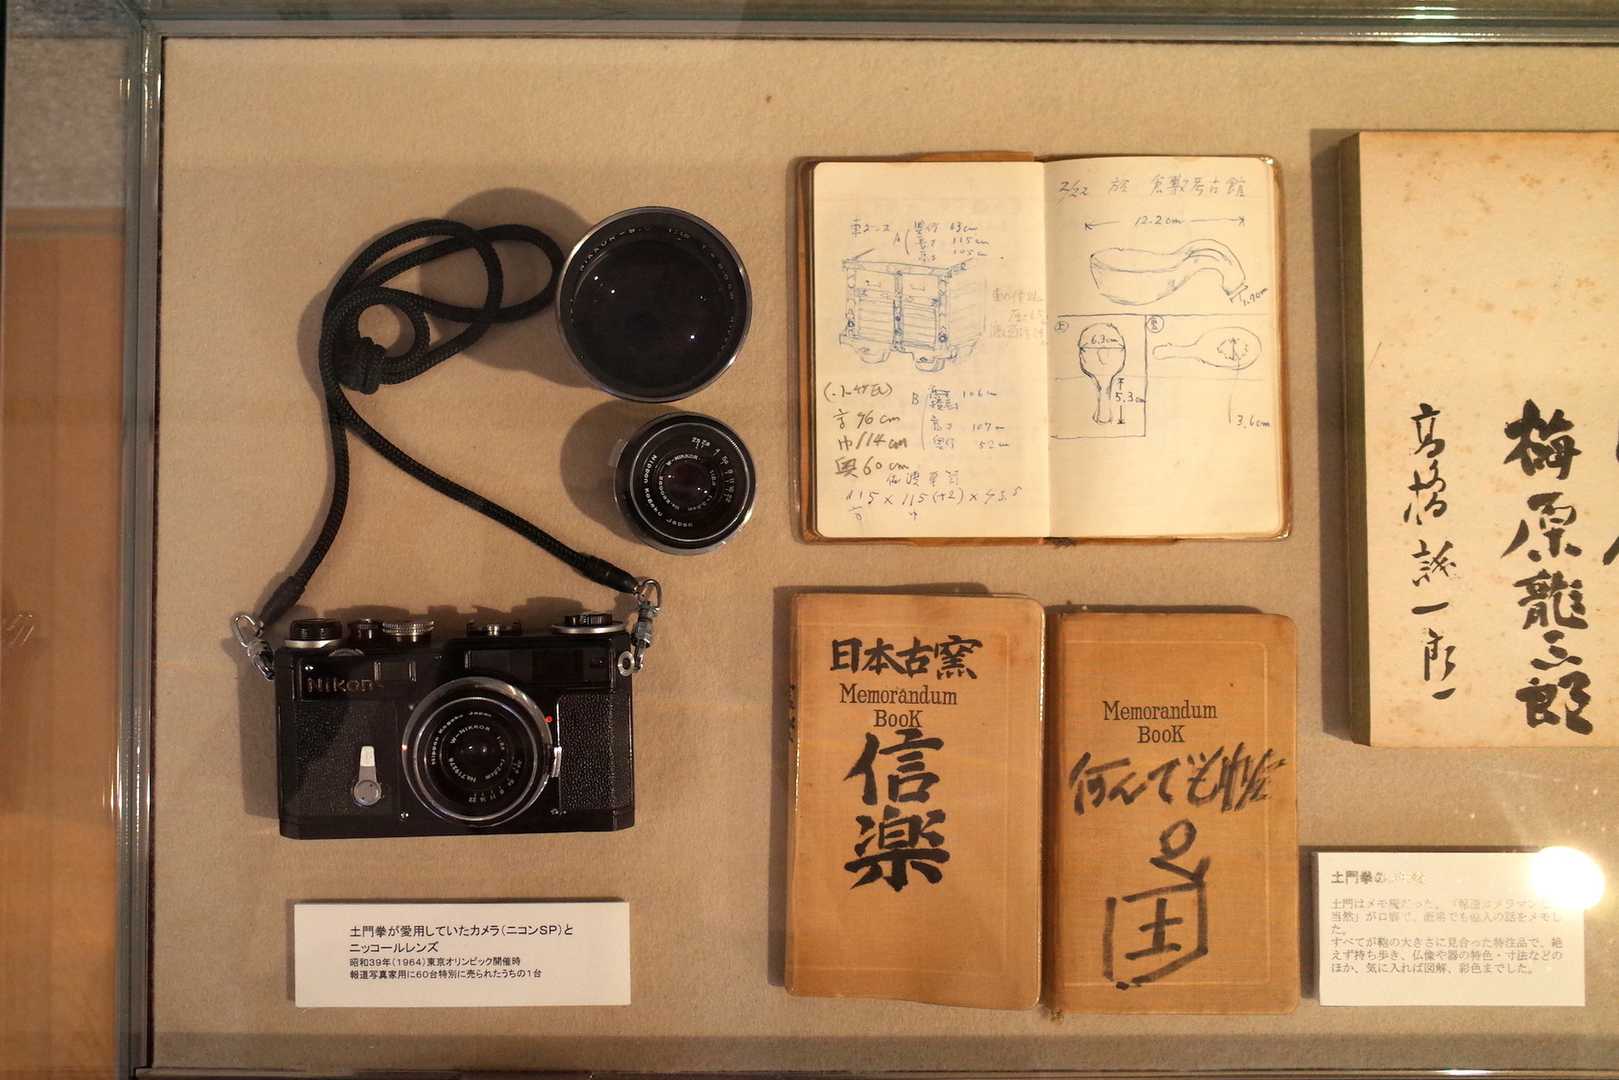 Nikon
W-NIKKOR
Nippon Kogaku Japan
2/22 於 倉敷考古館
12.2cm
車タンス
A
奥行 63cm
高さ 115cm
6.3cm
5.3cm
3.6cm
高 96cm
巾 114cm
奥 60cm
B
106cm
高さ 107cm
奥行 52cm
115×115(+2)×43.5
日本古窯
Memorandum
BooK
信楽
Memorandum
BooK
何んでも帖
梅原龍三郎
高橋誠一郎
土門拳が愛用していたカメラ（ニコンSP）と
ニッコールレンズ
昭和39年（1964）東京オリンピック開催時
報道写真家用に60台特別に売られたうちの1台
土門拳の
土門はメモ魔だった。「報道カメラマン
当然」が口癖で、酒席でも他人の話をメモし
た。
すべてが鞄の大きさに見合った特注品で、絶
えず持ち歩き、仏像や器の特色・寸法などの
ほか、気に入れば図解、彩色までした。